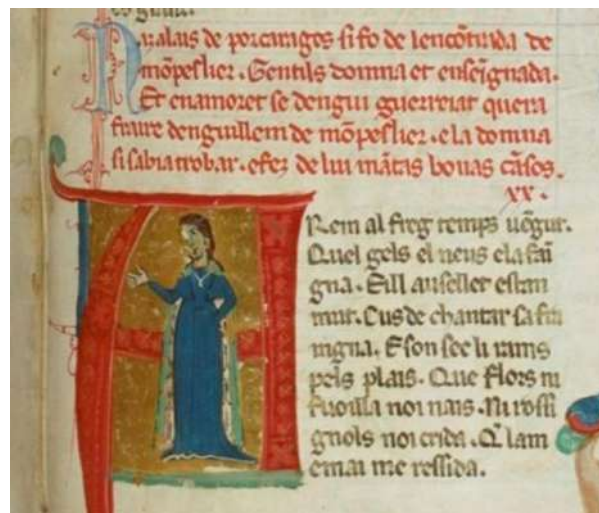 Nalais de porcarages si fo de lencōtrada de
mōpeslier. Gentils domna et enseignada.
Et enamoret se dengui guerreiat quera
fraire denguillem de mōpeslier. ela domna
si sabia trobar. efez de lui mātas bonas cāsos.
xx.
Rem al freg temps uēgut.
Quel gels el neus ela fai
gna. Eill auselles estan
mut. Cus de chantar sa frai
ingna. E son sec li rams
pels plais. Que flors ni
fuoilla noi nais. Ni rossi
gnols noi crida. Q lam
emai me ressida.